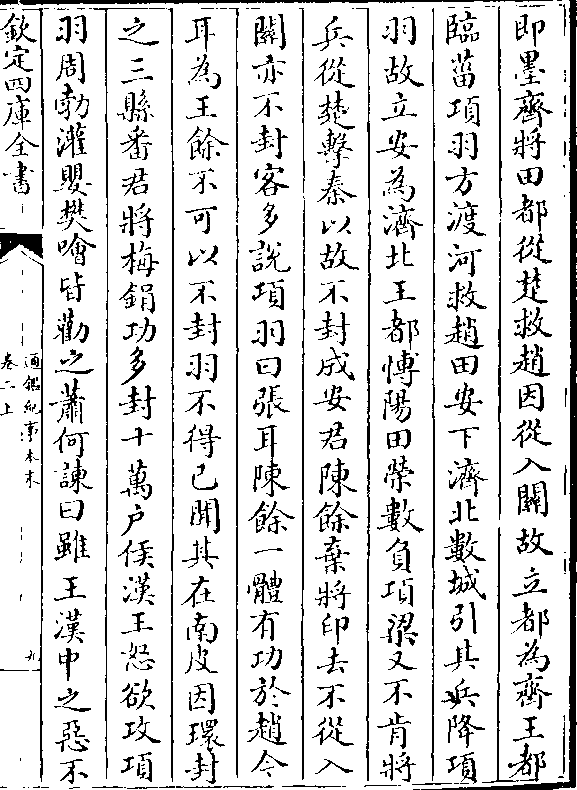 即墨齊將田都從楚救趙因從入關故立都為齊王都
臨菑項羽方渡河救趙田安下濟北數城引其兵降項
羽故立安為濟北王都博陽田榮數負項梁又不肯將
兵從楚擊秦以故不封成安君陳餘棄將印去不從入
關亦不封客多說項羽曰張耳陳餘一體有功於趙今
耳為王餘不可以不封羽不得已聞其在南皮因環封
之三縣番君將梅鋗功多封十萬戶侯漢王怒欲攻項
羽周勃灌嬰樊噲皆勸之蕭何諫曰雖王漢中之惡不
欽定四庫全書
通鑑紀事本末
卷二上
九